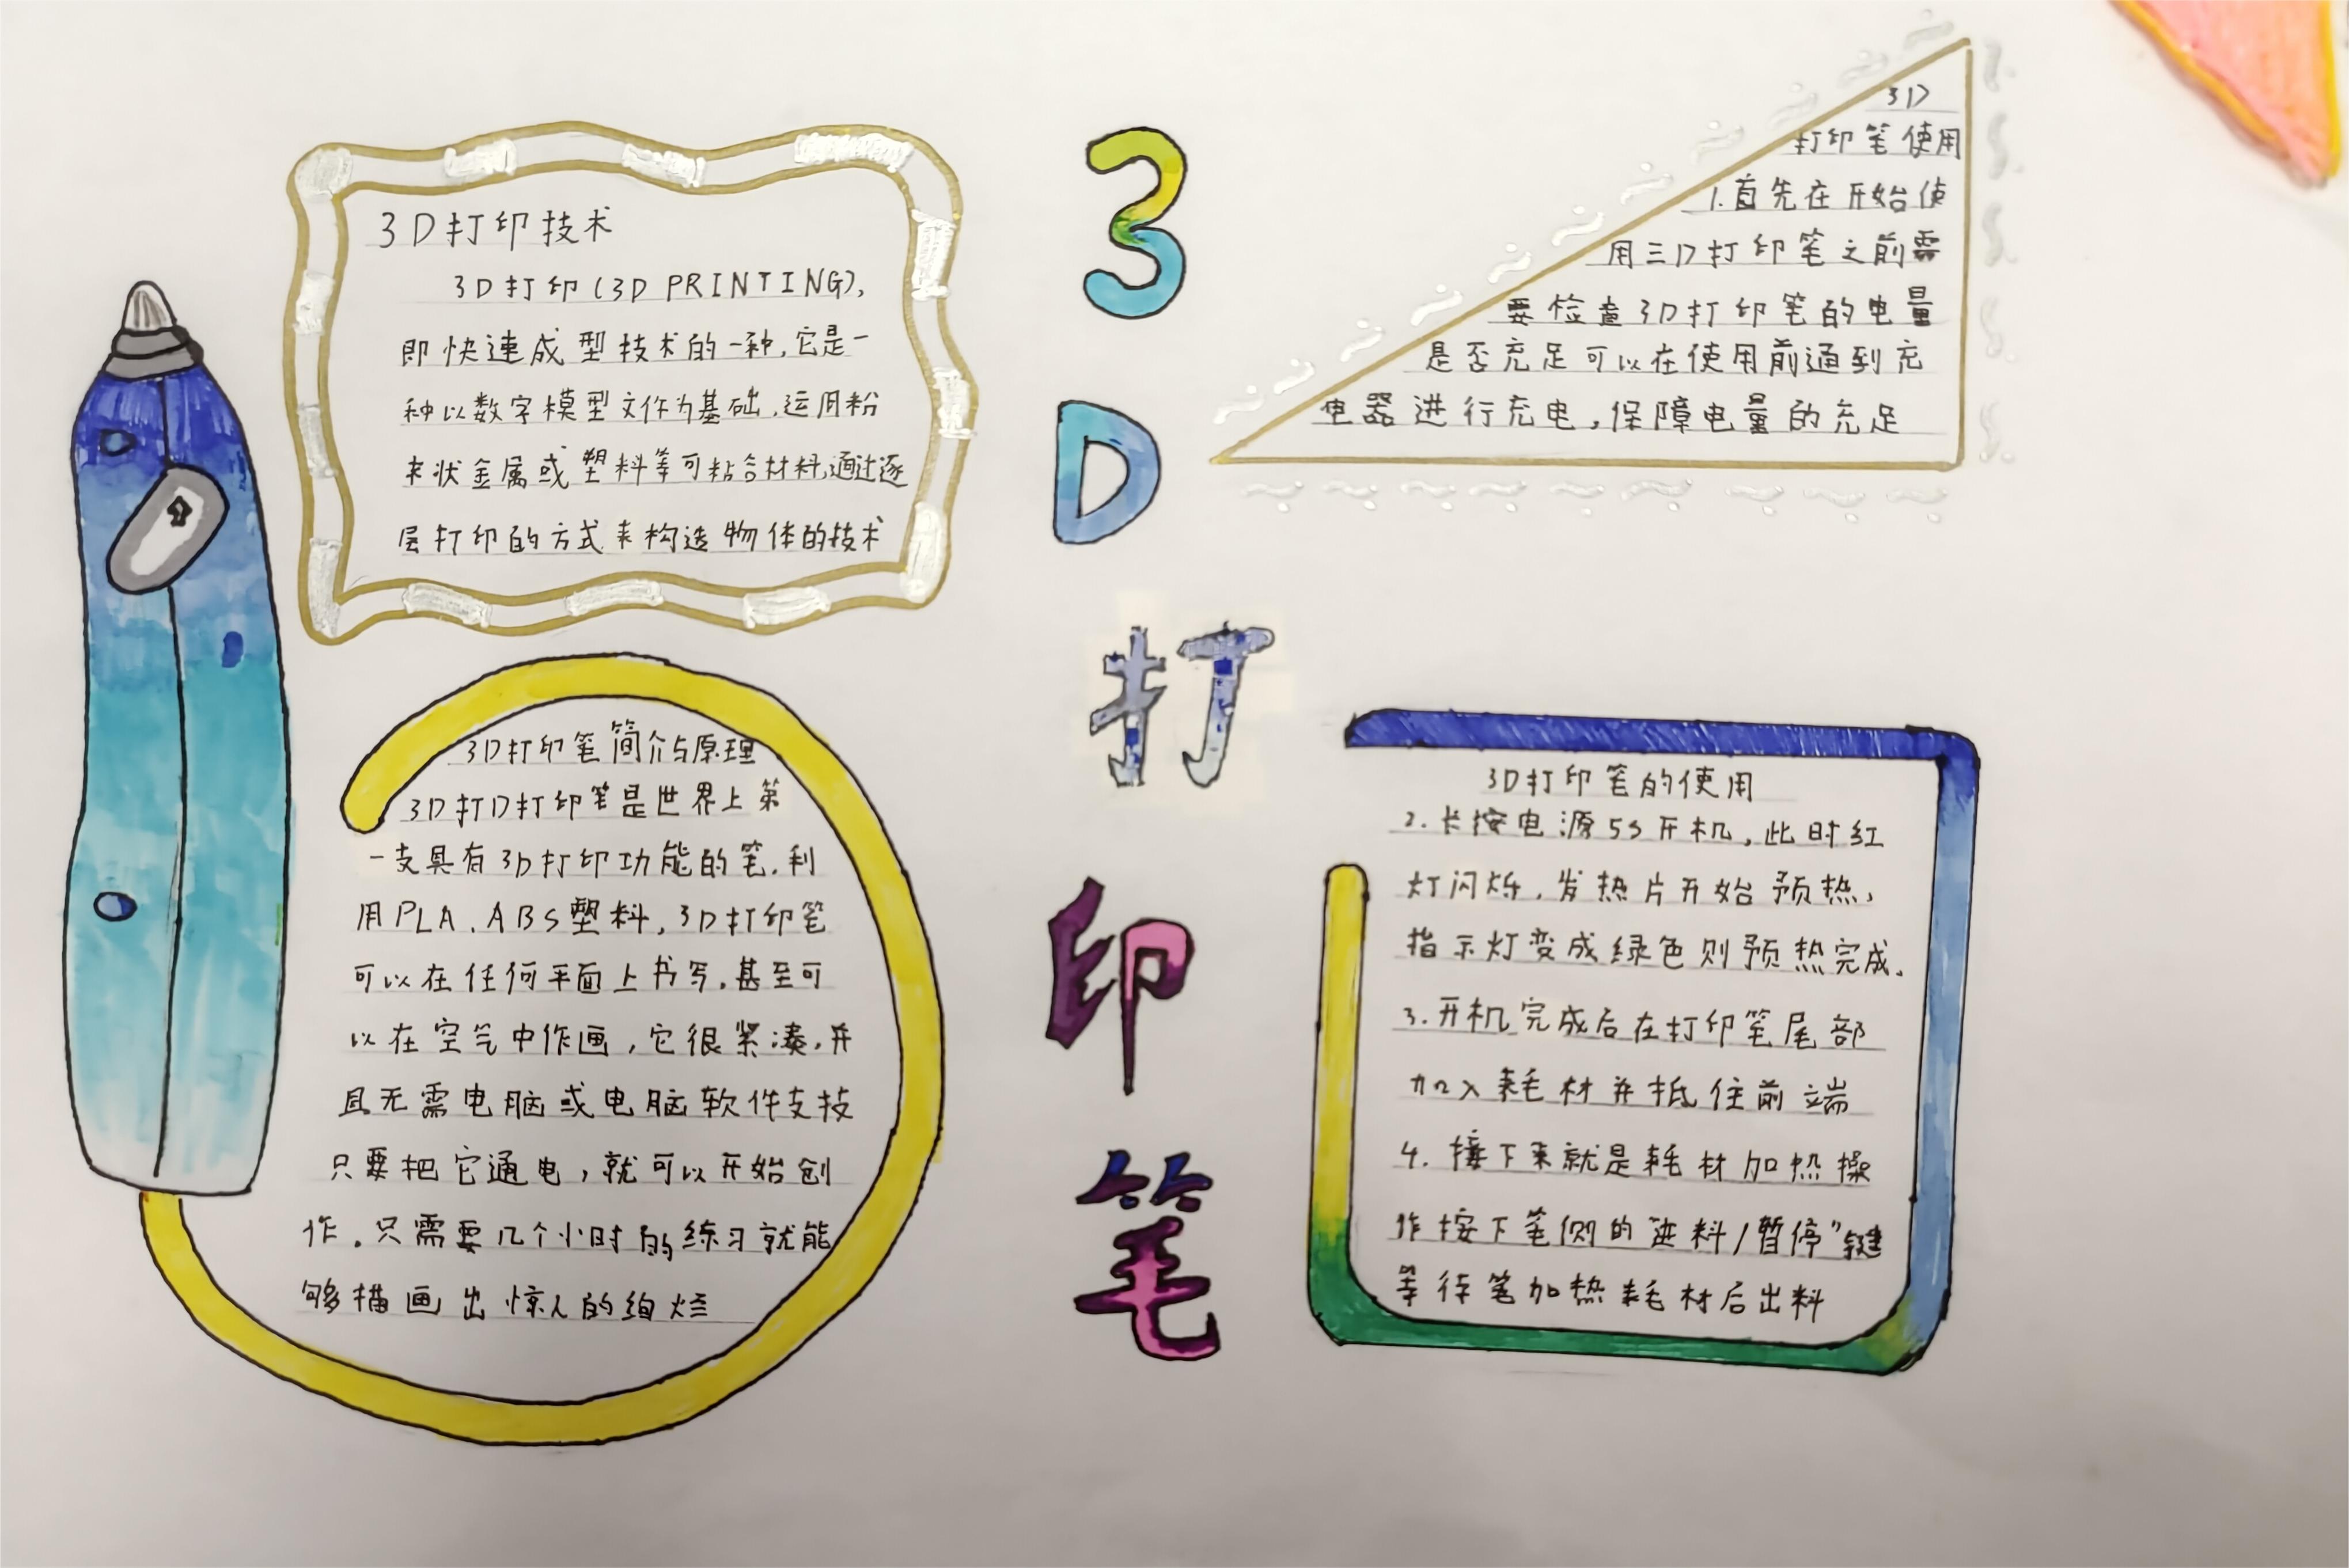 3D打印技术
3D打印(3D PRINTING),
即快速成型技术的一种,它是一
种以数字模型文作为基础,运用粉
末状金属或塑料等可粘合材料,通过逐
层打印的方式来构造物体的技术
3D打印笔简介与原理
3D打D打印笔是世界上第
一支具有3D打印功能的笔,利
用PLA、ABS塑料,3D打印笔
可以在任何平面上书写,甚至可
以在空气中作画,它很紧凑,并
且无需电脑或电脑软件支技
只要把它通电,就可以开始创
作。只需要几个小时的练习就能
够描画出惊人的绚烂
3
D
打
印
笔
3D
打印笔使用
1.首先在开始使
用三D打印笔之前需
要检查3D打印笔的电量
是否充足可以在使用前通到充
电器进行充电,保障电量的充足
3D打印笔的使用
2.长按电源5S开机,此时红
灯闪烁,发热片开始预热,
指示灯变成绿色则预热完成.
3.开机完成后在打印笔尾部
加入耗材并抵住前端
4.接下来就是耗材加热操
作按下笔侧的进料/暂停"键
等待笔加热耗材后出料